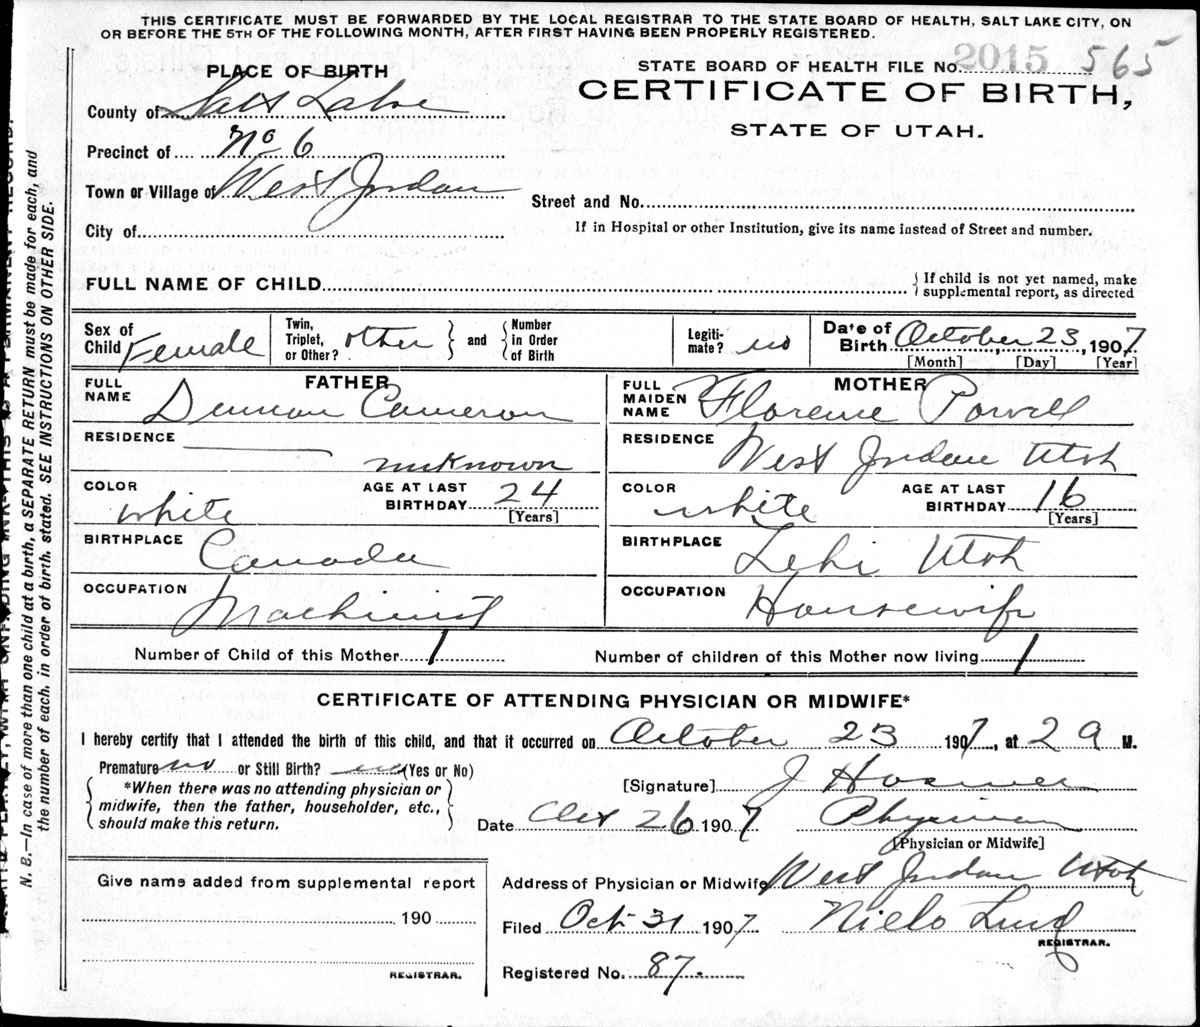 THIS CERTIFICATE MUST BE FORWARDED BY THE LOCAL REGISTRAR TO THE STATE BOARD OF HEALTH, SALT LAKE CITY, ON
OR BEFORE THE 5TH OF THE FOLLOWING MONTH, AFTER FIRST HAVING BEEN PROPERLY REGISTERED.
STATE BOARD OF HEALTH FILE NO. 2015 565
CERTIFICATE OF BIRTH,
STATE OF UTAH.
PLACE OF BIRTH
County of Salt Lake
Precinct of No 6
Town or Village of West Jordan
Street and No.
City of
If in Hospital or other Institution, give its name instead of Street and number.
FULL NAME OF CHILD
{ If child is not yet named, make
supplemental report, as directed
Sex of Child Female
Twin, Triplet, or Other? other } and { Number in Order of Birth
Legiti-mate? no
Date of Birth October 23, 1907
[Month] [Day] [Year]
FATHER
FULL NAME Duncan Cameron
RESIDENCE unknown
COLOR white
AGE AT LAST BIRTHDAY 24
[Years]
BIRTHPLACE Canada
OCCUPATION Machinist
MOTHER
FULL MAIDEN NAME Florence Powell
RESIDENCE West Jordan Utah
COLOR white
AGE AT LAST BIRTHDAY 16
[Years]
BIRTHPLACE Lehi Utah
OCCUPATION Housewife
Number of Child of this Mother 1
Number of children of this Mother now living 1
CERTIFICATE OF ATTENDING PHYSICIAN OR MIDWIFE*
I hereby certify that I attended the birth of this child, and that it occurred on October 23 1907, at 2 a M.
Premature no or Still Birth? no (Yes or No)
*When there was no attending physician or
midwife, then the father, householder, etc.,
should make this return.
[Signature] J
Date Oct 26 1907 Physician
[Physician or Midwife]
Give name added from supplemental report
190
REGISTRAR.
Address of Physician or Midwife West Jordan Utah
Filed Oct 31 1907 Niels Lind
REGISTRAR.
Registered No. 87.
N. B.—In case of more than one child at a birth, a SEPARATE RETURN must be made for each, and
the number of each, in order of birth, stated. SEE INSTRUCTIONS ON OTHER SIDE.